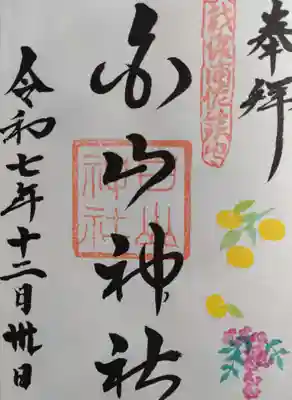 奉拝
白山神社
白山
神社
令和七年十二月卅日